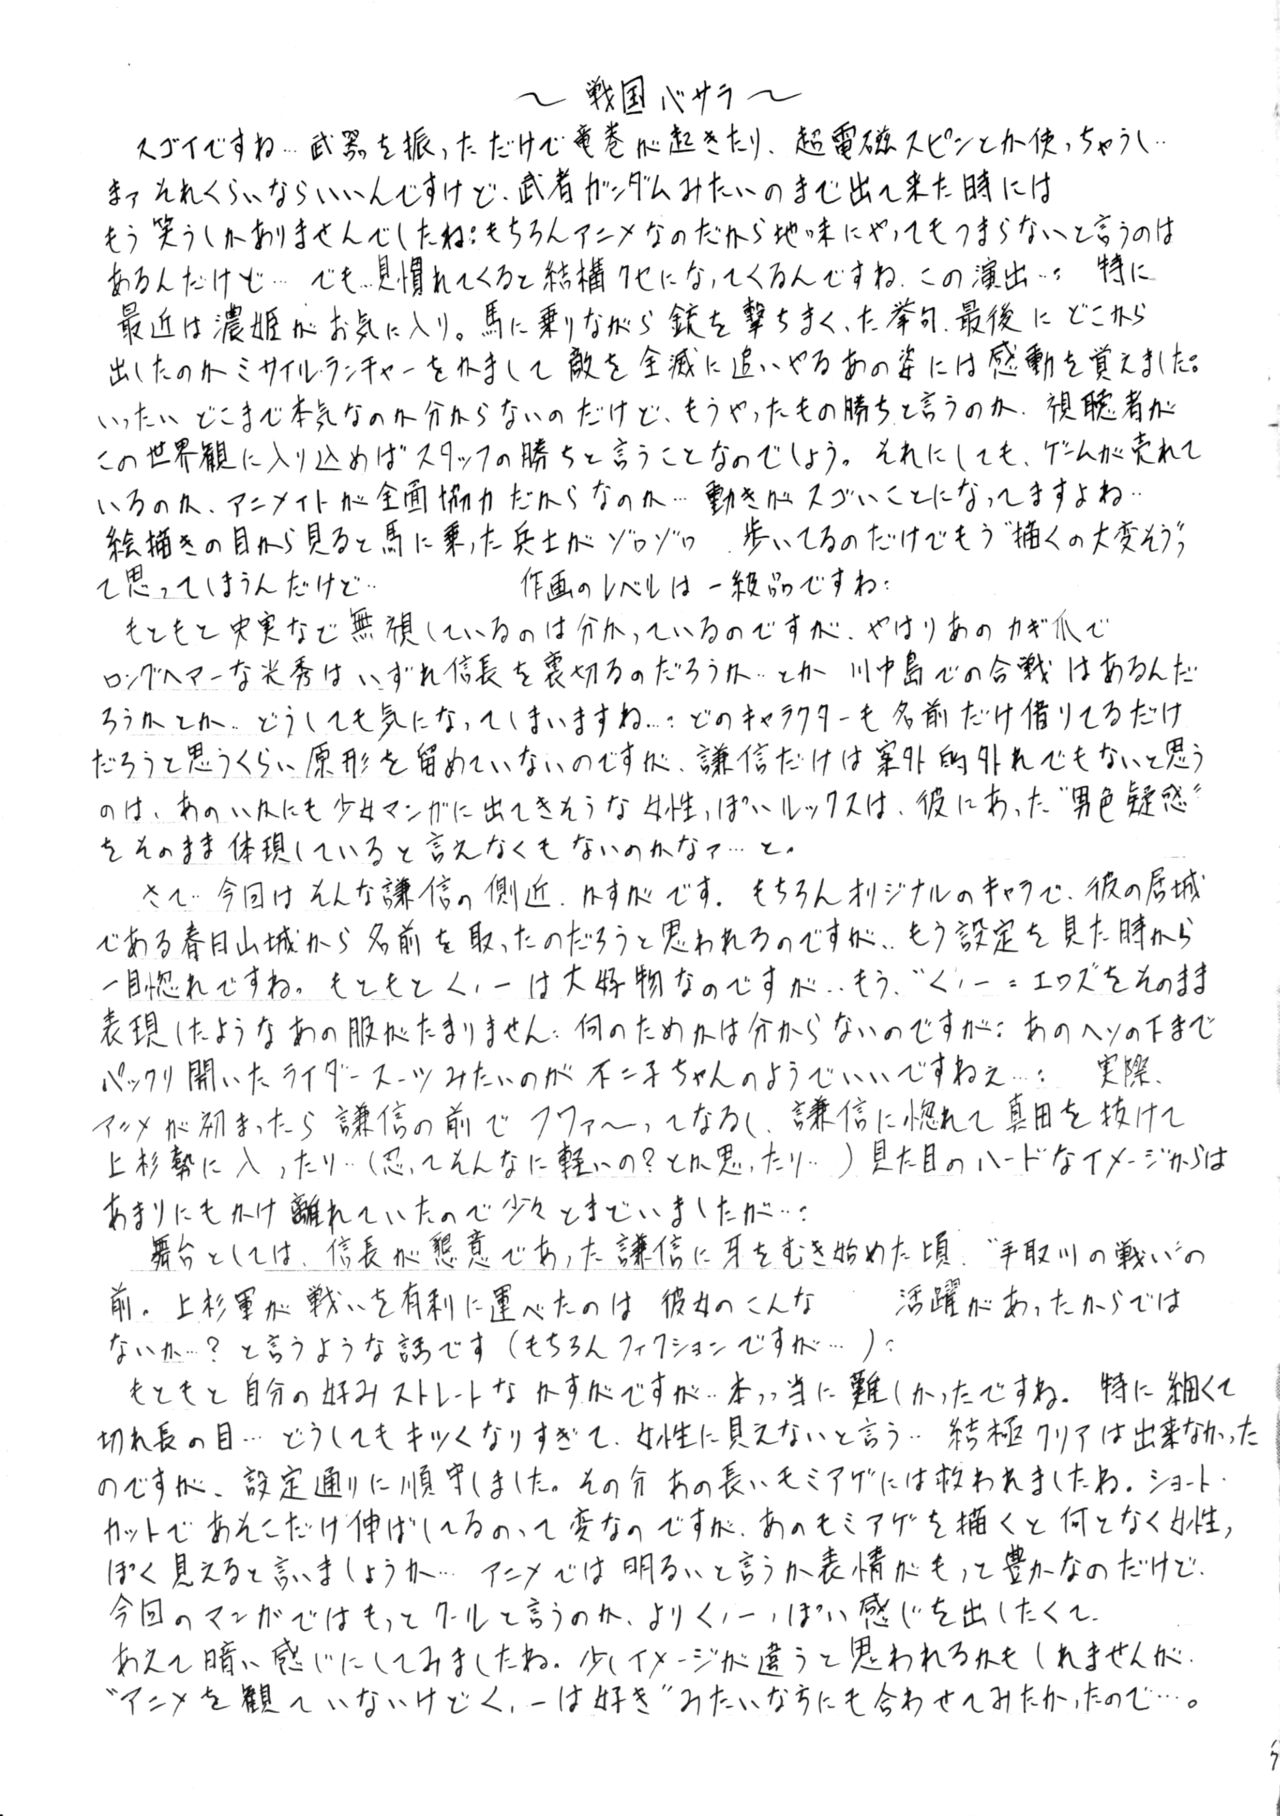 ～戦国バサラ～
スゴイですね… 武器を振っただけで竜巻が起きたり、超電磁スピンとか使っちゃうし…
まァそれくらいならいいんですけど、武者ガンダムみたいのまで出て来た時には
もう笑うしかありませんでしたね: もちろんアニメなのだから地味にやってもつまらないと言うのは
あるんだけど… でも…見慣れてくると結構クセになってくるんですね、この演出…: 特に
最近は濃姫がお気に入り。馬に乗りながら銃を撃ちまくった挙句、最後にどこから
出したのかミサイル・ランチャーをかまして敵を全滅に追いやるあの姿には感動を覚えました。
いったいどこまで本気なのか分からないのだけど、もうやったもの勝ちと言うのか、視聴者が
この世界観に入り込めばスタッフの勝ちと言うことなのでしょう。それにしても、ゲームが売れて
いるのか、アニメイトが全面協力だからなのか… 動きがスゴいことになってますよね…
絵描きの目から見ると馬に乗った兵士がゾロゾロ 歩いてるのだけでもう“描くの大変そう”
て思ってしまうんだけど… 作画のレベルは一級品ですね:
もともと史実など無視しているのは分かっているのですが、やはりあのカギ爪で
ロングヘアーな光秀はいずれ信長を裏切るのだろうか…とか 川中島での合戦はあるんだ
ろうかとか… どうしても気になってしまいますね…: どのキャラクターも名前だけ借りてるだけ
だろうと思うくらい原形を留めていないのですが、謙信だけは案外的外れでもないと思う
のは、あのいかにも少女マンガに出てきそうな女性っぽいルックスは、彼にあった“男色疑惑”
をそのまま体現していると言えなくもないのかなァ…と。
さて… 今回はそんな謙信の側近、かすがです。もちろんオリジナルのキャラで、彼の居城
である春日山城から名前を取ったのだろうと思われるのですが、もう設定を見た時から
一目惚れですね。もともとくノ一は大好物なのですが… もう、“くノ一=エロス”をそのまま
表現したようなあの服がたまりません: 何のためかは分からないのですが: あのヘソの下まで
パックリ開いたライダースーツみたいのが不二子ちゃんのようでいいですねぇ…: 実際、
アニメが初まったら謙信の前でフワァ～ってなるし、謙信に惚れて真田を抜けて
上杉勢に入ったり…(忍ってそんなに軽いの?とか思ったり…) 見た目のハードなイメージからは
あまりにもかけ離れていたので少々とまどいましたが…:
舞台としては、信長が懇意であった謙信に牙をむき始めた頃、“手取川の戦い”の
前。上杉軍が戦いを有利に運べたのは彼女のこんな 活躍があったからでは
ないか…?と言うような話です(もちろんフィクションですが…):
もともと自分の好みストレートなかすがですが… 本っ当に難しかったですね。特に細くて
切れ長の目… どうしてもキツくなりすぎて、女性に見えないと言う… 結極クリアは出来なかった
のですが、設定通りに順守しました。その分あの長いモミアゲには救われましたね。ショート・
カットであそこだけ伸ばしてるのって変なのですが、あのモミアゲを描くと何となく女性っ
ぽく見えると言いましょうか… アニメでは明るいと言うか表情がもっと豊かなのだけど、
今回のマンガではもっとクールと言うのか、よりくノ一っぽい感じを出したくて、
あえて暗い感じにしてみましたね。少しイメージが違うと思われるかもしれませんが、
“アニメを観ていないけどくノ一は好き”みたいな方にも合わせてみたかったので…。